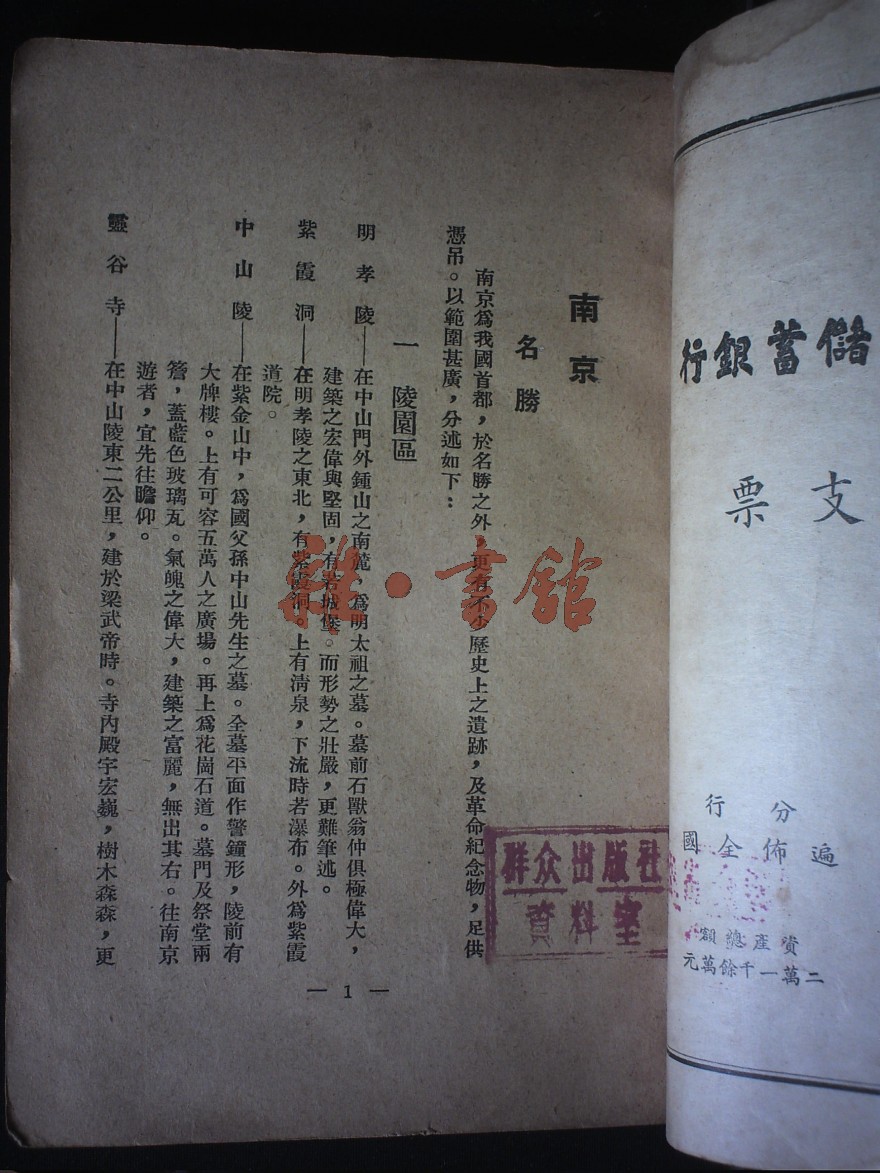 南京
名勝
南京爲我國首都，於名勝之外，更有不少歷史上之遺跡，及革命紀念物，足供
憑吊。以範圍甚廣，分述如下：
一 陵園區
明孝陵——在中山門外鍾山之南麓，爲明太祖之墓。墓前石獸翁仲俱極偉大，
建築之宏偉與堅固，有若城堡。而形勢之壯嚴，更難筆述。
紫霞洞——在明孝陵之東北，有紫霞洞。上有淸泉，下流時若瀑布。外爲紫霞
道院。
中山陵——在紫金山中，爲國父孫中山先生之墓。全墓平面作警鐘形，陵前有
大牌樓。上有可容五萬人之廣場。再上爲花崗石道。墓門及祭堂兩
簷，蓋藍色玻璃瓦。氣魄之偉大，建築之富麗，無出其右。往南京
遊者，宜先往瞻仰。
靈谷寺——在中山陵東二公里，建於梁武帝時。寺內殿宇宏巍，樹木森森，更
— 1 —
雜·書館
群众出版社
資料室
儲蓄銀行
支票
分行
遍佈全國
資產總額
二萬一千餘萬元